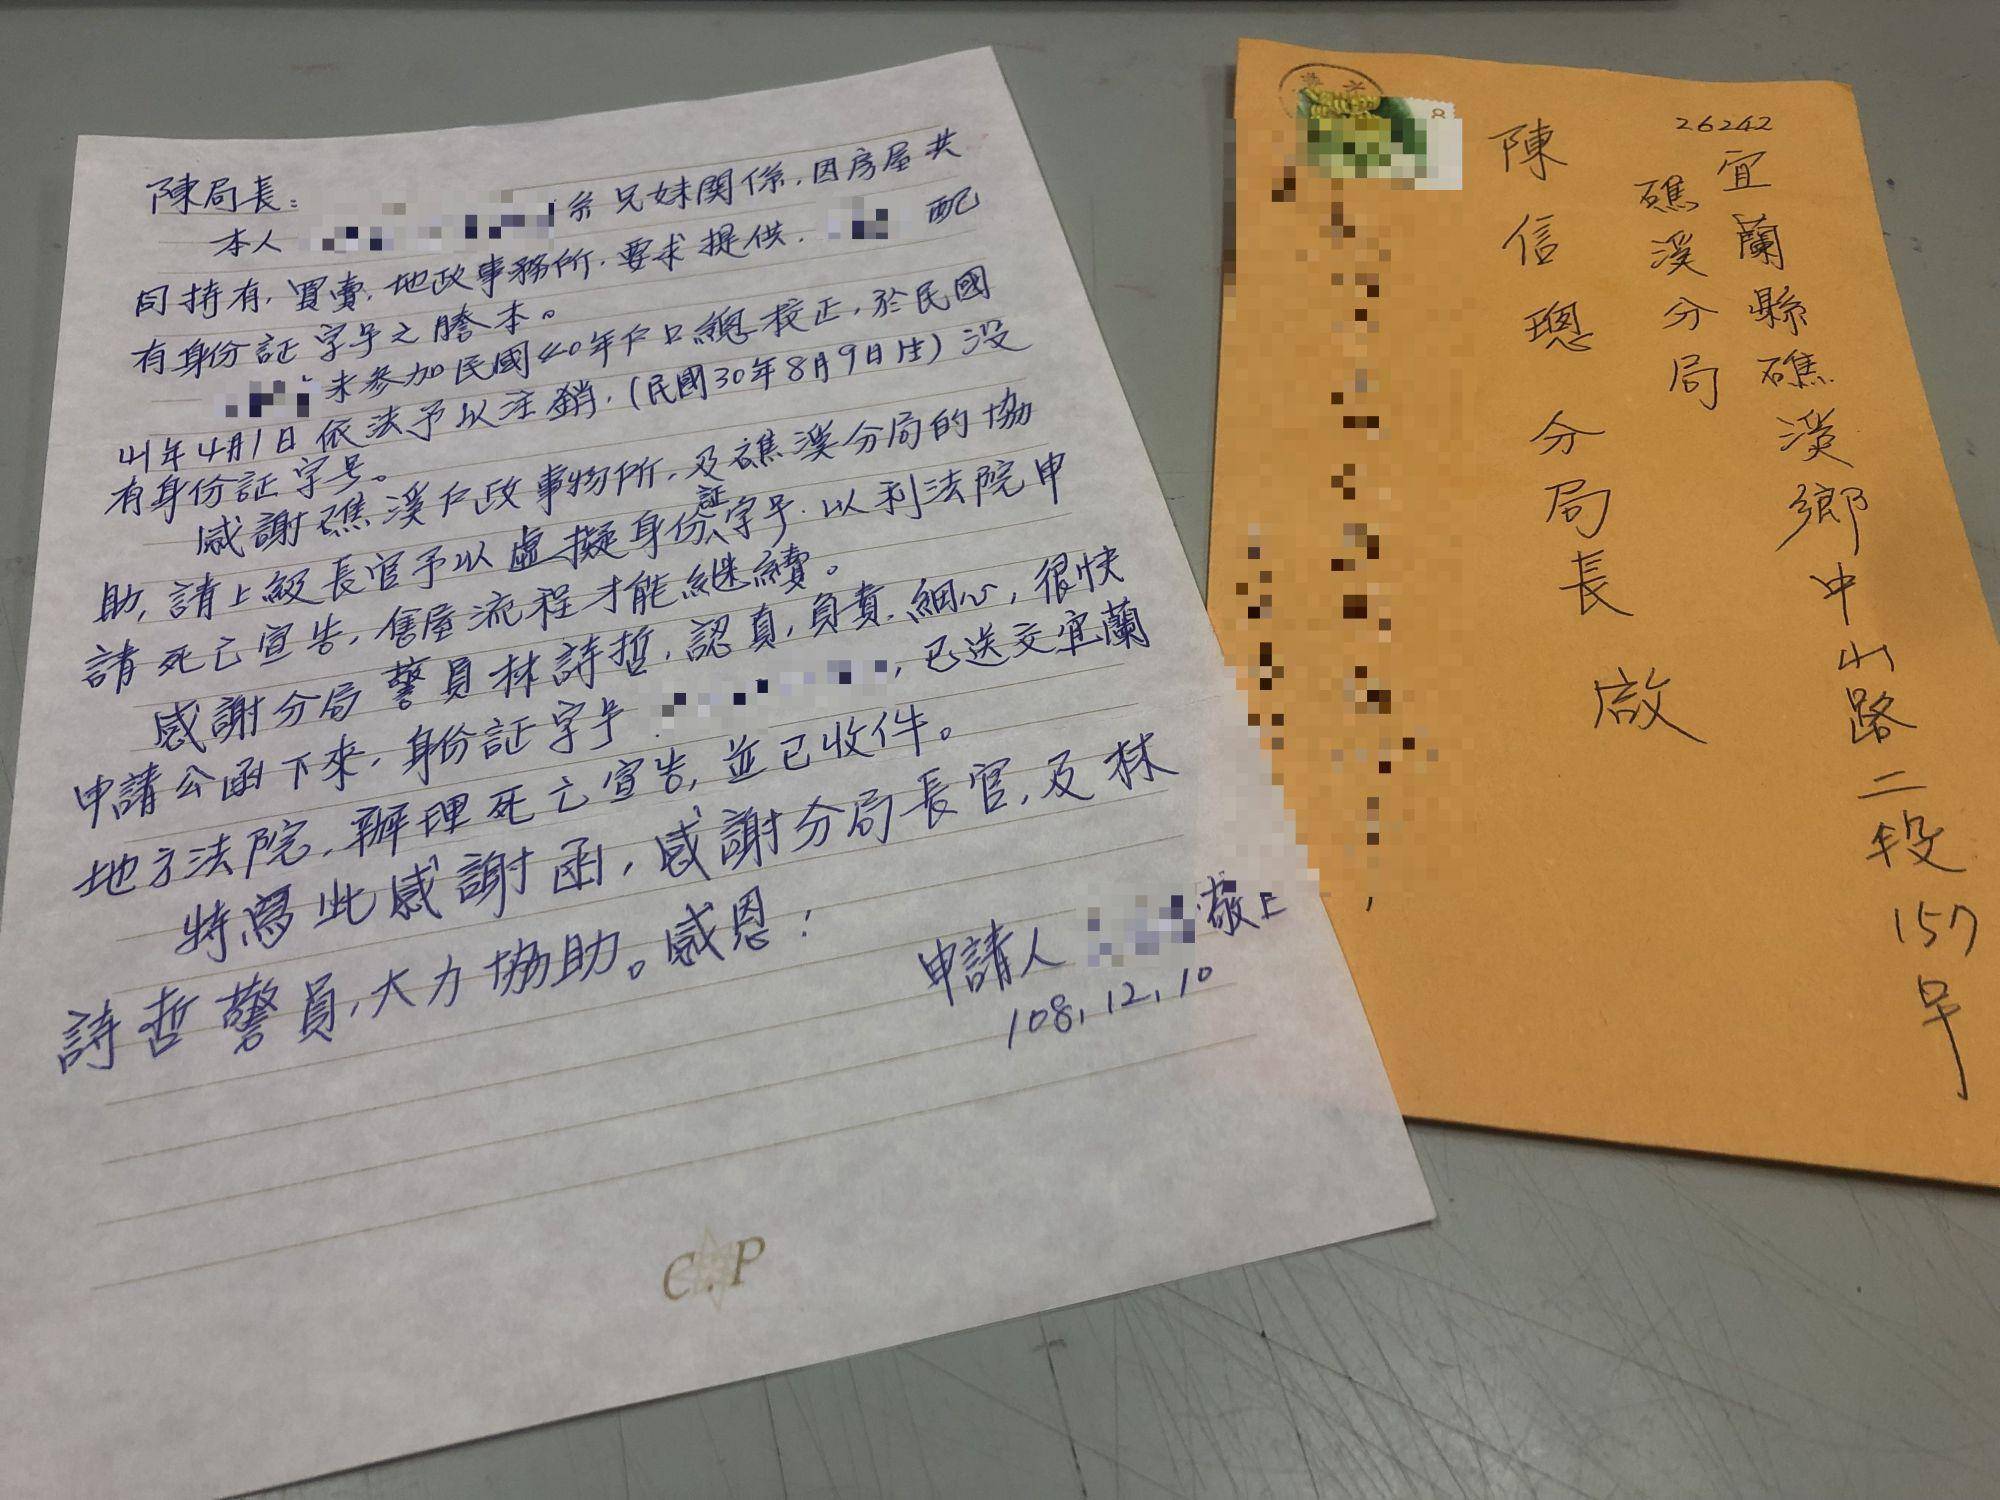 陳局長:
本人 系兄妹関係,因房屋共
同持有,買賣,地政事務所,要求提供, 配
有身份証字号之謄本。
未參加民國40年户口總校正,於民國
41年4月1日依法予以注銷,(民國30年8月9日生)没
有身份証字号。
感謝礁溪户政事物所,及礁溪分局的協
助,請上級長官予以虛擬身份証字号.以利法院申
請死亡宣告,售屋流程才能継續。
感謝分局警員林詩哲,認真,負責.細心,很快
申請公函下來,身份証字号 ,已送交宜蘭
地方法院,辦理死亡宣告,並已收件。
特爲此感謝函,感謝分局長官,及林
詩哲警員,大力協助。感恩!
申請人 敬上
108.12.10
C P
26242
宜蘭縣礁溪鄉中山路二段157号
礁溪分局
陳信璁分局長 啟
8